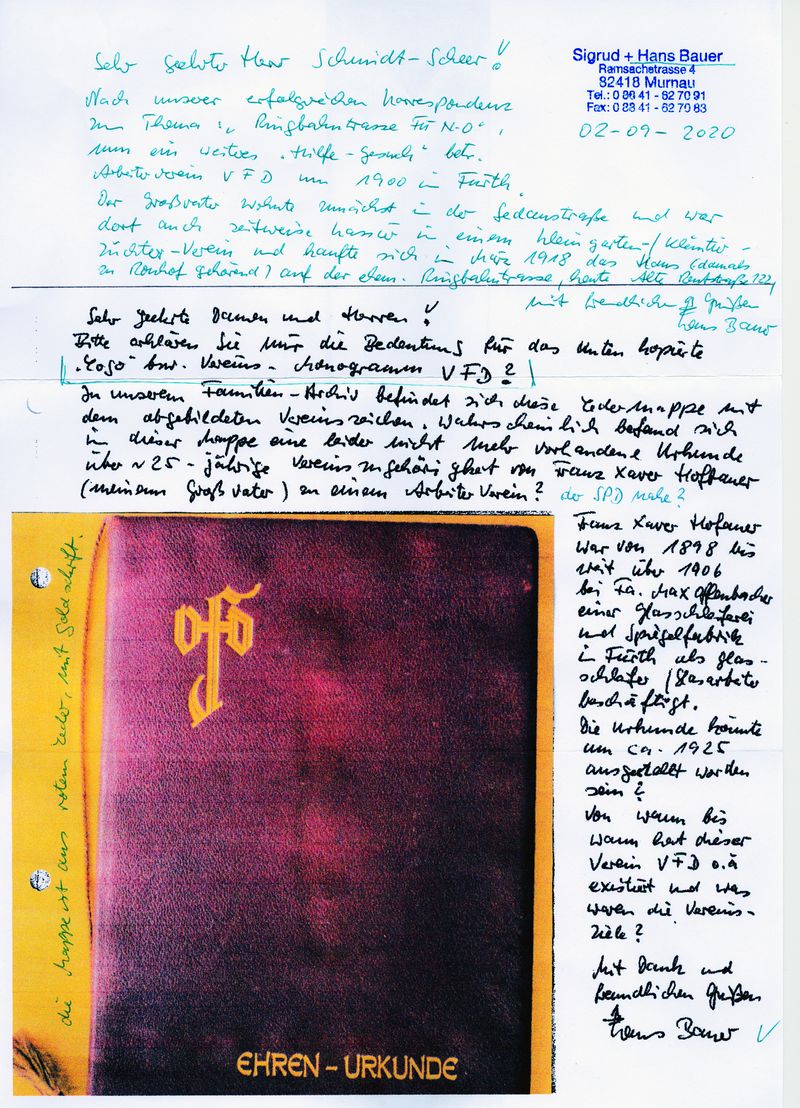 Sehr geehrter Herr Schmidt-Scheer!
Sigrud + Hans Bauer
Ramsachstrasse 4
82418 Murnau
Tel.: 0 88 41 - 62 70 91
Fax: 0 88 41 - 62 70 83
02-09-2020
Nach unserer erfolgreichen Korrespondenz
zum Thema: „Ringbahntrasse Fü N-O“,
nun ein weiteres „Hilfe-Gesuch“ betr.
Arbeiterverein VFD um 1900 in Fürth.
Der Großvater wohnte zunächst in der Sedanstraße und war
dort auch zeitweise Kassier in einem Kleingarten-/Kleintier-
züchter-Verein und kaufte sich im März 1918 das Haus (damals
zu Ronhof gehörend) auf der ehem. Ringbahntrasse, heute Alte Reutstraße 122,
mit freundlichen Grüßen
Hans Bauer
Sehr geehrte Damen und Herren!
Bitte erklären Sie mir die Bedeutung für das unten kopierte
„Logo“ bzw. Vereins-Monogramm VFD?
In unserem Familien-Archiv befindet sich diese Ledermappe mit
dem abgebildeten Vereinszeichen. Wahrscheinlich befand sich
in dieser Mappe eine leider nicht mehr vorhandene Urkunde
über ~25-jährige Vereinszugehörigkeit von Franz Xaver Hofbauer
(meinem Großvater) zu einem Arbeiterverein? der SPD nahe?
die Mappe ist aus rotem Leder, mit Goldschrift.
EHREN-URKUNDE
Franz Xaver Hofauer
war von 1898 bis
weit über 1906
bei Fa. Max Offenbacher
einer Glasschleiferei
und Spiegelfabrik
in Fürth als Glas-
schleifer/Glasarbeiter
beschäftigt.
Die Urkunde könnte
um ca. 1925
ausgestellt worden
sein?
Von wann bis
wann hat dieser
Verein VFD o.ä
existiert und was
waren die Vereins-
ziele?
Mit Dank und
freundlichen Grüßen
Hans Bauer